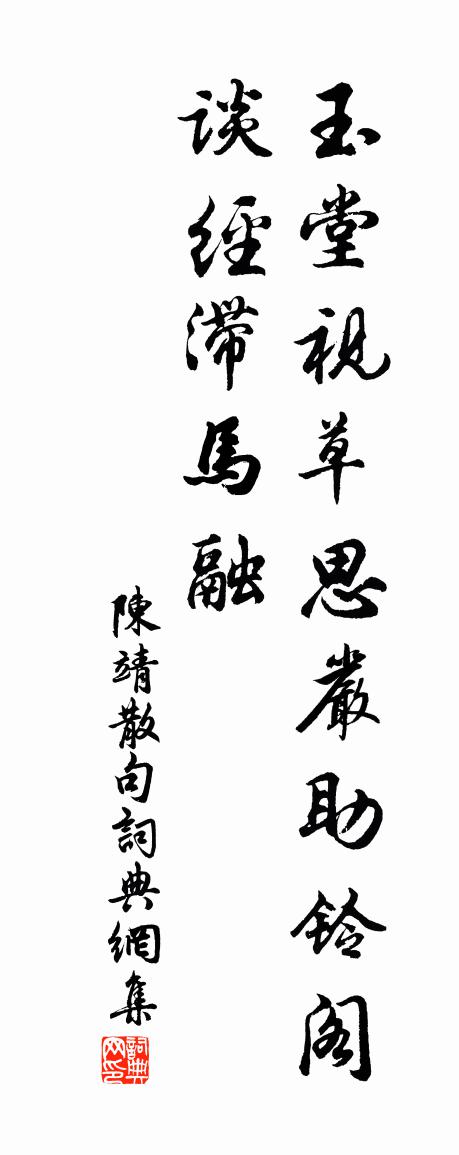 玉堂視草思嚴助鈴阁
談經滞馬融
陳靖散句詞典網集
詞典网印